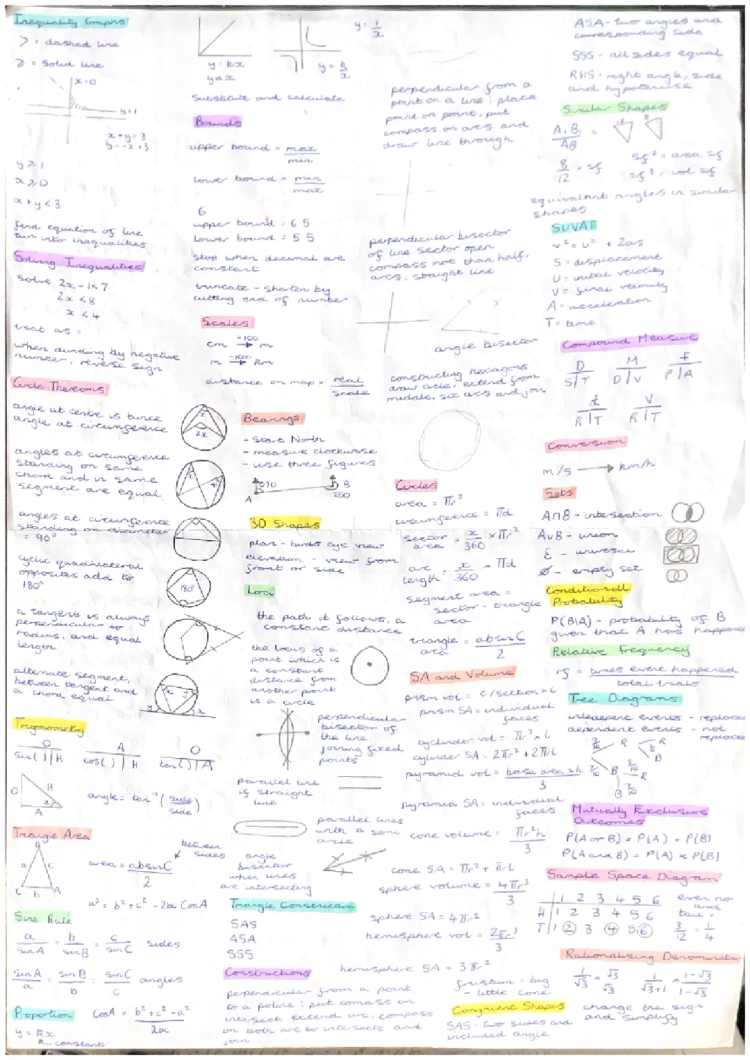 Inequality Graphs
> = dashed line
⩾ = solid line
x=0
y=1
x+y=3
y=-x+3
y⩾1
x⩾0
x+y<3
find equation of line
turn into inequalities
Solving Inequalities
Solve 2x-1<7
2x<8
x<4
treat as =
when dividing by negative
number = reverse sign
Circle Theorems
angle at centre is twice
angle at circumference
x
2x
angles at circumference
standing on same
chord and in same
segment are equal
angles at circumference
standing on diameter
= 90°
cyclic quadrilateral
opposites add to
180°
180°
a tangent is always
perpendicular to
radius, and equal
length
alternate segment,
between tangent and
a chord equal
x y
y x
Trigonometry
O
sin( ) | H
A
cos( ) | H
O
tan( ) | A
O H
x
A
angle = tan⁻¹ (side/side)
Triangle Area
B
a c
C b A
between
sides
area = absinC
2
a² = b² + c² - 2bc CosA
Sine Rule
a/sinA = b/sinB = c/sinC sides
sinA/a = sinB/b = sinC/c angles
Proportion
CosA = b²+c²-a²
2bc
y = kx
constant
y = kx
y∝x
y = k/x
y = 1/x
substitute and calculate
Bounds
upper bound = max/min
lower bound = min/max
6
upper bound = 6 5
lower bound = 5 5
stop when decimal are
constant
truncate - shorten by
cutting end of number
Scales
cm ÷100 → m
m ÷1000 → km
distance on map = real
scale
Bearings
- start North
- measure clockwise
- use three figures
070
A
B
250
3D Shapes
plan - birds eye view
elevation - view from
front or side
Loci
the path it follows, a
constant distance
the locus of a
point which is
a constant
distance from
another point
is a circle
perpendicular
bisector of
the line
joining fixed
points
parallel line
is straight
line
parallel lines
with a semi
circle
angle
bisector
when lines
are intersecting
Triangle Constructions
SAS
ASA
SSS
Constructions
perpendicular from a point
to a line: put compass on
intersect extend arc, compass
on both arc to intersects and
join
perpendicular from a
point on a line: place
point on point, put
compass on arcs and
draw line through
perpendicular bisector
of line sector open
compass not than half,
arcs, straight line
angle bisector
constructing hexagons
draw circle: extend from
middle, six arcs and join
Circles
area = πr²
circumference = πd
sector area = x/360 × πr²
arc length = x/360 × πd
segment area =
sector - triangle
area
triangle = absinC
2
SA and Volume
prism vol = c/section × L
prism SA = individual
faces
cylinder vol = πr² × L
cylinder SA = 2πr² + 2πrL
pyramid vol = base area × h
3
pyramid SA = individual
faces
cone volume = πr²h
3
cone SA = πr² + πrL
sphere volume = 4πr³
3
sphere SA = 4πr²
hemisphere vol = 2πr³
3
hemisphere SA = 3πr²
frustum = big
- little cone
Congruent Shapes
SAS - two sides and
included angle
ASA - two angles and
corresponding side
SSS - all sides equal
RHS - right angle, side
and hypotenuse
Similar Shapes
A₁B₁
AB
8/12 = sf
sf² = area sf
sf³ = vol sf
equivalent angles in similar
shapes
SUVAT
v² = u² + 2as
S = displacement
U = initial velocity
V = final velocity
A = acceleration
T = time
Compound Measure
D
S|T
M
D|V
F
P|A
d
R|T
V
R|T
Conversion
m/s → km/h
Sets
A∩B - intersection
A∪B - union
ξ - universal
∅ - empty set
Conditional
Probability
P(B|A) - probability of B
given that A has happened
Relative Frequency
rf = times event happened
total trials
Tree Diagrams
independent events - replace
dependent events - not
replace
Mutually Exclusive
Outcomes
P(A or B) = P(A) + P(B)
P(A and B) = P(A) × P(B)
Sample Space Diagram
1 2 3 4 5 6
H 1 2 3 4 5 6
T 1 2 3 4 5 6
even no
and
tail =
3/12 = 1/4
Rationalising Denominator
1/√3 × √3/√3
1/√3+1 × 1-√3/1-√3
change the sign
and simplify